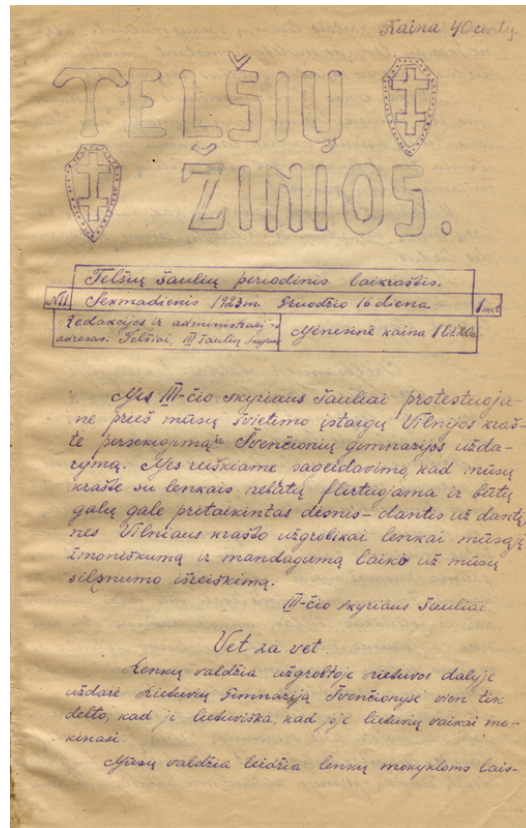 Kaina 40 centų.
TELŠIŲ
ŽINIOS.
Telšių šaulių periodinis laikraštis.
№1 Sekmadienis 1923 m. Gruodžio 16 diena. 1 met.
Redakcijos ir administracijos
adresas: Telšiai, III šaulių skyrius
Mėnesinė kaina 1 lit.
Mes III-čio skyriaus šauliai protestuoja-
me prieš mūsų švietimo įstaigų Vilnijos kraš-
te persekiojimą ir Švenčionių gimnazijos užda-
rymą. Mes reiškiame pageidavimo, kad mūsų
krašte su lenkais nebūtų flirtuojama ir būtų
galų gale pritaikintas dėsnis - dantis už dantį,
nes Vilniaus krašto užgrobikai lenkai mūsąjį
žmoniškumą ir mandagumą laiko už mūsų
silpnumo išreiškimą.
III-čio skyriaus Šauliai
Vet za vet
Lenkų valdžia užgrobtoje Lietuvos dalyje
uždarė Lietuvių Gimnaziją Švenčionyse vien tik
delto, kad ji lietuviška, kad joje lietuvių vaikai mo-
kinasi.
Mūsų valdžia leidžia lenkų mokykloms lais-